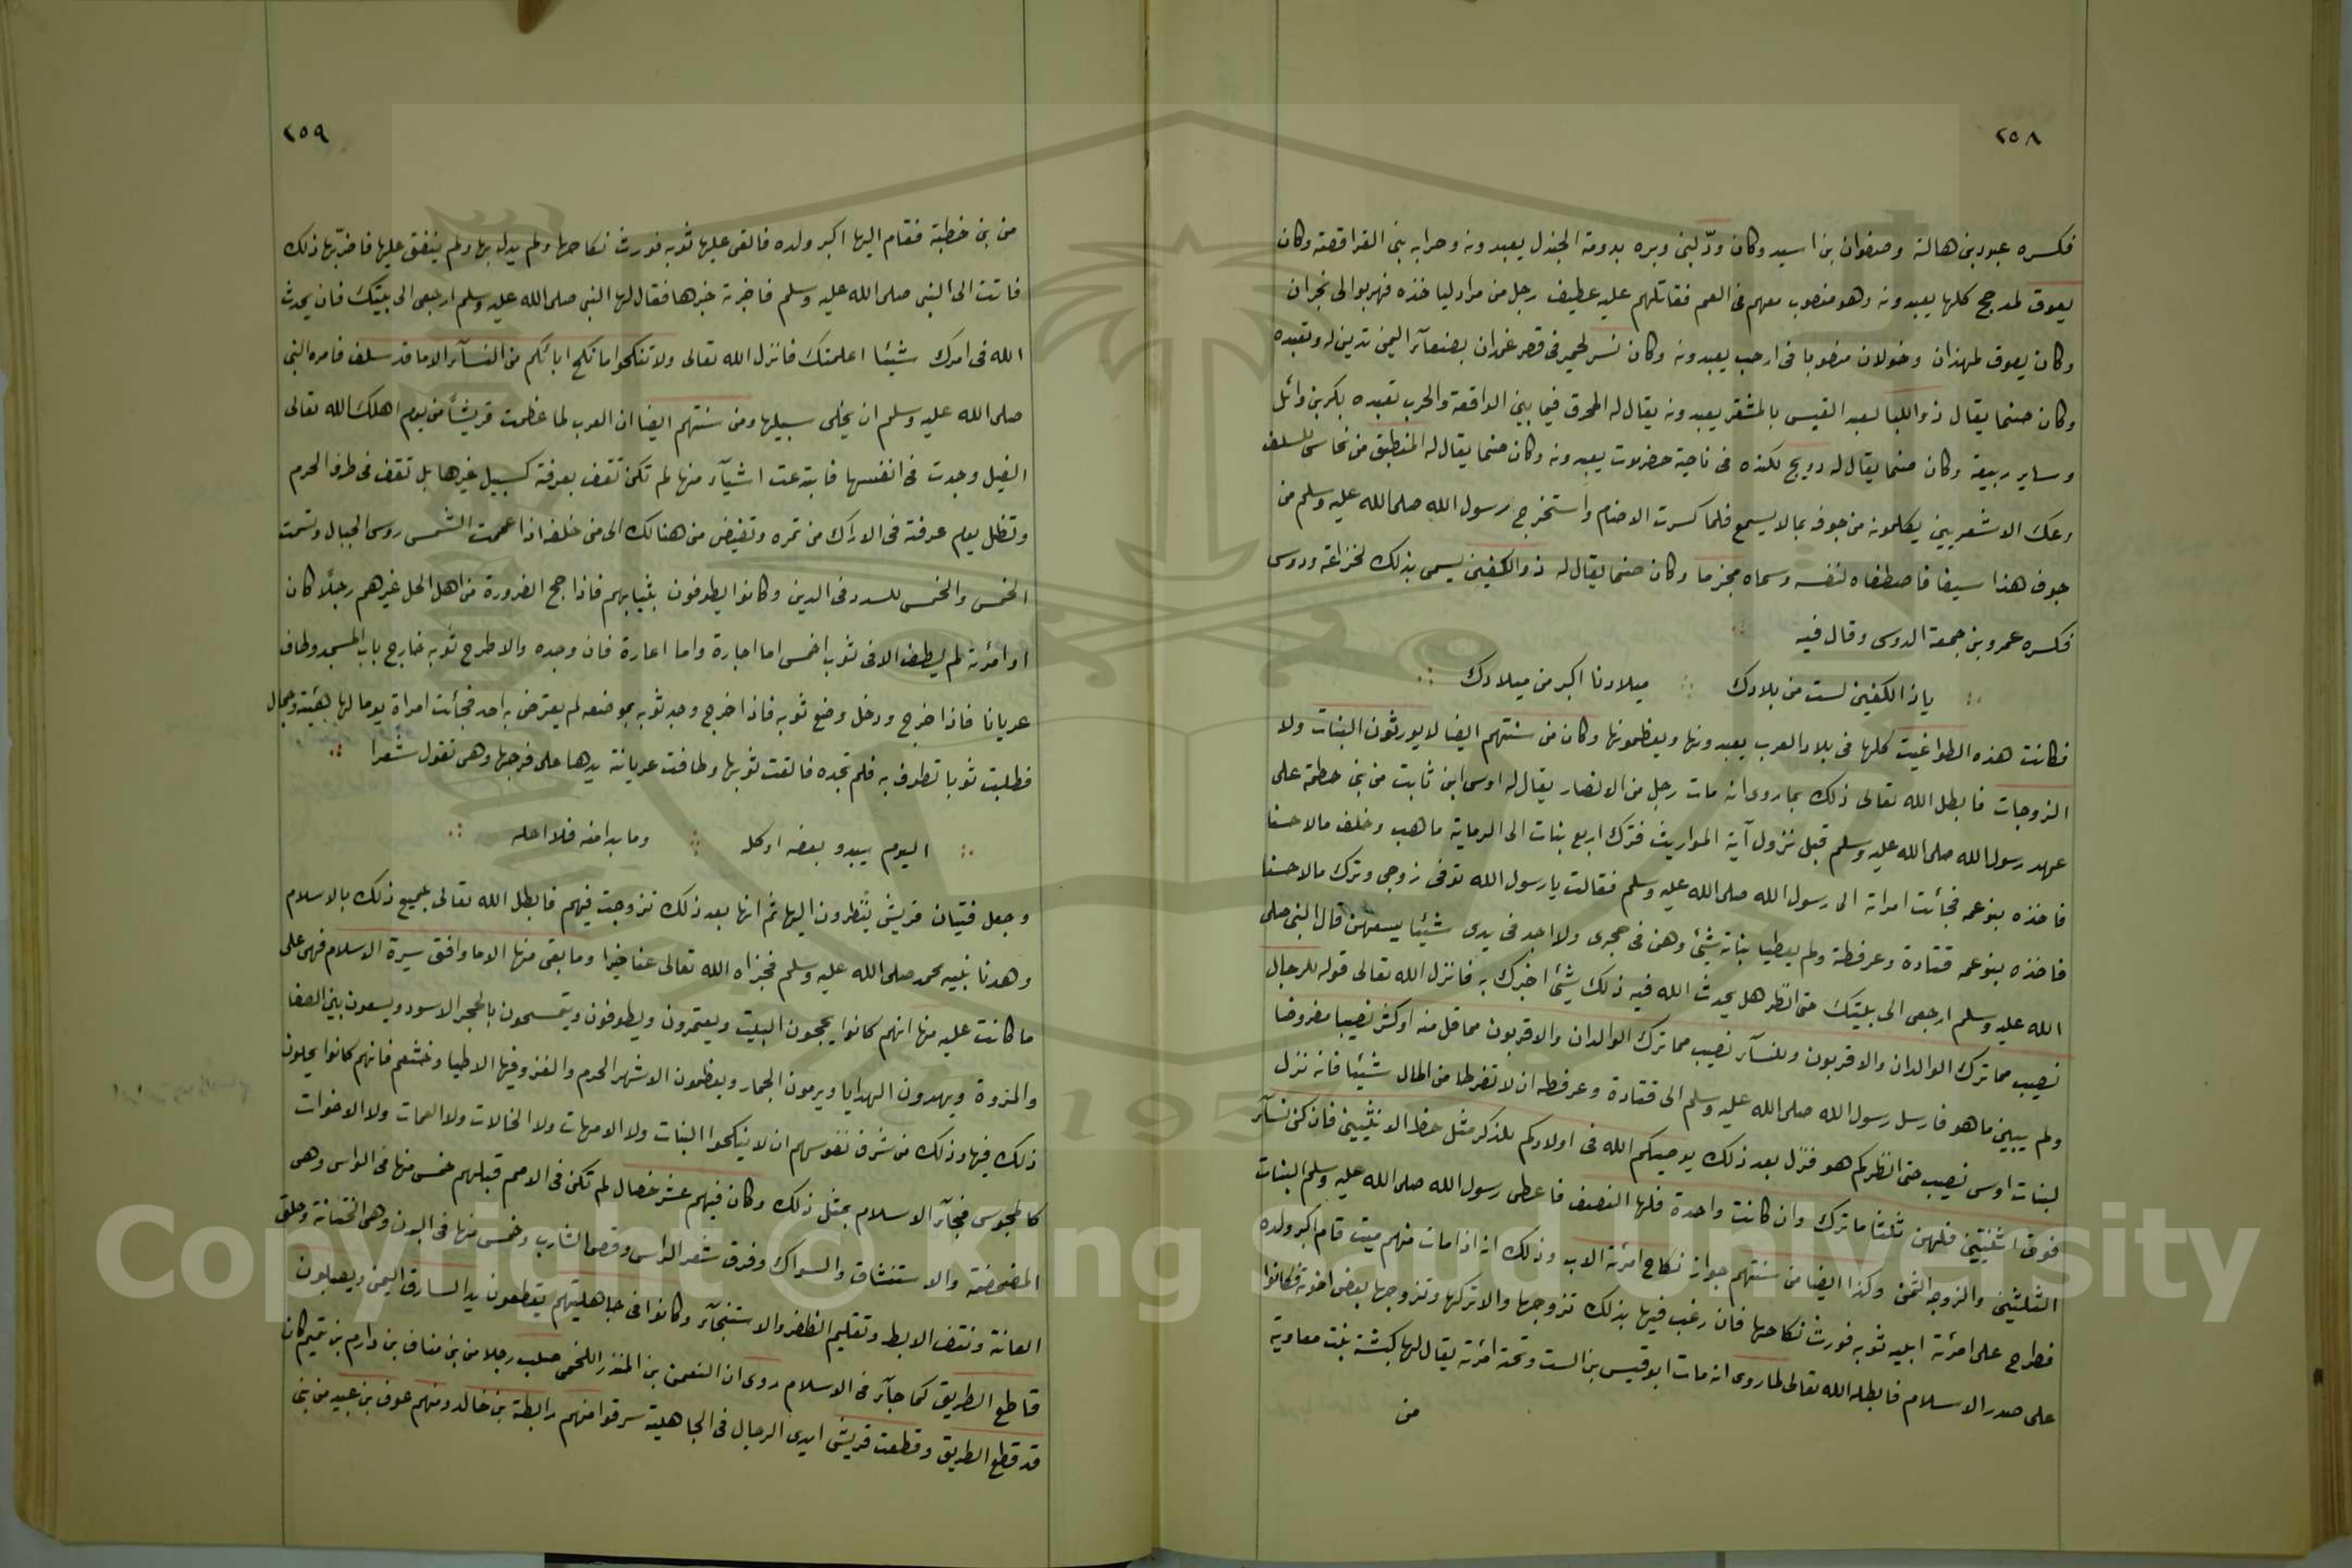 ٢٥٨
فكسره عبود بن هالة وصفوان بن اسيد وكان ودّ لبنى وبره بدومة الجندل يعبدونه وحرابه بنى الفراقصة وكان
يعوق لمدحج كلها يعبدونه وهو منصوب معهم فى العم فقاتلهم عليه عطيف رجل من مراد لياخذه فهربوا الى نجران
وكان يعوق لهمذان وخولان منصوبا فى ارحب يعبدونه وكان نسر لحمير فى قصر غمدان بصنعآء اليمن تدين له وتعبده
وكان صنما يقال ذو اللبا لعبد القيس بالمشقر يعبدونه يقال له المحرق فيما بين الواقعة والحرب تعبده بكر بن وائل
وساير ربيعة وكان صنما يقال له دويج لكنده فى ناحية حضرلات يعبدونه وكان صنما يقال له المنطبق من نحاس للسلف
وعك الاشعريين يكلمونه من جوفه بما لا يسمع فلما كسرت الاصنام واستخرج رسول الله صلى الله عليه وسلم من
جوف هذا سيفا فاصطفاه لنفسه وسماه مخزما وكان صنما يقال له ذو الكفين يسمى بذلك لخزاعة ودوس
فكسره عمرو بن جمعة الدوسى وقال فيه
ياذا الكفين لست من بلادك ميلادنا اكبر من ميلادك
فكانت هذه الطواغيت كلها فى بلاد العرب يعبدونها ويعظمونها وكان من سنتهم ايضا لا يورثون البنات ولا
الزوجات فابطل الله تعالى ذلك بما روى انه مات رجل من الانصار يقال له اوس ابن ثابت من بنى خطمة على
عهد رسول الله صلى الله عليه وسلم قبل نزول آية المواريث فترك اربع بنات الى الرماية ماهب وخلف مالا حسنا
فاخذه بنو عمه فجائت امراته الى رسول الله صلى الله عليه وسلم فقالت يا رسول الله توفى زوجى وترك مالا حسنا
فاخذه بنو عمه قتادة وعرفطة ولم يعطيا بناته شيئ وهن فى حجرى ولا اجد فى يدى شيئا يسعهن قال النبى صلى
الله عليه وسلم ارجعى الى بيتك حتى انظر هل يحدث الله فيه ذلك شيئ اخبرك به فانزل الله تعالى قوله للرجال
نصيب مما ترك الوالدان والاقربون وللنسآء نصيب مما ترك الوالدان والاقربون مما قل منه او كثر نصيبا مفروضا
ولم يبين ما هو فارسل رسول الله صلى الله عليه وسلم الى قتادة وعرفطه ان لا تفرطا من المال شيئا فانه نزل
لبنات اوس نصيب حتى انظر كم هو فنزل بعد ذلك يوصيكم الله فى اولادكم للذكر مثل حظ الانثيين فان كن نسآء
فوق اثنتين فلهن ثلثا ما ترك وان كانت واحدة فلها النصف فاعطى رسول الله صلى الله عليه وسلم البنات
الثلثين والزوجه الثمن وكذا ايضا من سنتهم جواز نكاح امرئة الاب وذلك انه اذا مات منهم ميت قام اكبر ولده
فطرح على امرئة ابيه ثوبه فورث نكاحها فان رغب فيها بذلك تزوجها والا تركها وتزوجها بعض اخوته فكانوا
على صدر الاسلام فابطله الله تعالى لما روى انه مات ابو قيس بن الست وتحته امرئة يقال لها كبشة بنت معاوية
من
٢٥٩
من بنى خطمة فقام اليها اكبر ولده فالقى عليها ثوبه فورث نكاحها ولم يدل بها ولم ينفق عليها فاضربها ذلك
فاتت الى النبى صلى الله عليه وسلم فاخبرته خبرها فقال لها النبى صلى الله عليه وسلم ارجعى الى بيتك فان يحدث
الله فى امرك شيئا اعلمتك فانزل الله تعالى ولا تنكحوا ما نكح ابائكم من النسآء الا ما قد سلف فامره النبى
صلى الله عليه وسلم ان يخلى سبيلها ومن سنتهم ايضا ان العرب لما عظمت قريشاً من يوم اهلك الله تعالى
الفيل وجدت فى انفسها فابتدعت اشيآء منها لم تكن تقف بعرفة كسبيل غيرها بل تقف فى طرف الحرم
وتظل يوم عرفة فى الاراك من تمره وتفيض من هنالك الى من خلفه اذا عممت الشمس روس الجبال وتسمت
الخمس والخمس للسدد فى الدين وكانوا يطوفون بثيابهم فاذا حج الضرورة من اهل الحل غيرهم رجلًا كان
او امرئة لم يطف الا فى ثوب اخمس اما اجارة واما اعارة فان وجده والا طرح ثوبه خارج باب المسجد وطاف
عريانا فاذا خرج ودخل وضع ثوبه فاذا خرج وجد ثوبه بموضعه لم يعترض به احد فجائت امراة يوما لها هيئة وجمال
فطلبت ثوبا تطوف به فلم تجده فالقت ثوبها وطافت عريانة يدها على فرجها وهى تقول شعرا
اليوم يبدو بعضه او كله وما بدا منه فلا احله
وجعل فتيان قريش ينظرون اليها ثم انها بعد ذلك تزوجت فيهم فابطل الله تعالى جميع ذلك بالاسلام
وهدنا بنبيه محمد صلى الله عليه وسلم فجزاه الله تعالى عنا خيرا وما بقى منها الا ما وافق سيرة الاسلام فهى على
ما كانت عليه منها انهم كانوا يحجون البيت ويعتمرون ويطوفون ويتمسحون بالحجر الاسود ويسعون بين الصفا
والمروة ويهدون الهدايا ويرمون الجمار ويعظمون الاشهر الحرم والغزو فيها الا طيا وخثعم فانهم كانوا يحلون
ذلك فيها وذلك من شرف نفوسهم ان لا ينكحوا البنات ولا الامهات ولا الخالات ولا العمات ولا الاخوات
كالمجوس فجآء الاسلام بمثل ذلك وكان فيهم عشر خصال لم تكن فى الامم قبلهم خمس منها فى الراس وهى
المضمضة والاستنشاق والسواك وفرق شعر الراس وقص الشارب وخمس منها فى البدن وهى الختانة وحلق
العانة ونتف الابط وتقليم الظفر والاستنجآء وكانوا فى جاهليتهم يقطعون يد السارق اليمن ويصلبون
قاطع الطريق كما جآء فى الاسلام روى ان النعمن بن المنذر اللخمى صلب رجلا من بنى مناف بن دارم بن تميم كان
قد قطع الطريق وقطعت قريش ايدى الرجال فى الجاهلية سرقوا منهم رابطة بن خالد ومنهم عوف بن عبيد من بنى
Copyright © King Saud University
195